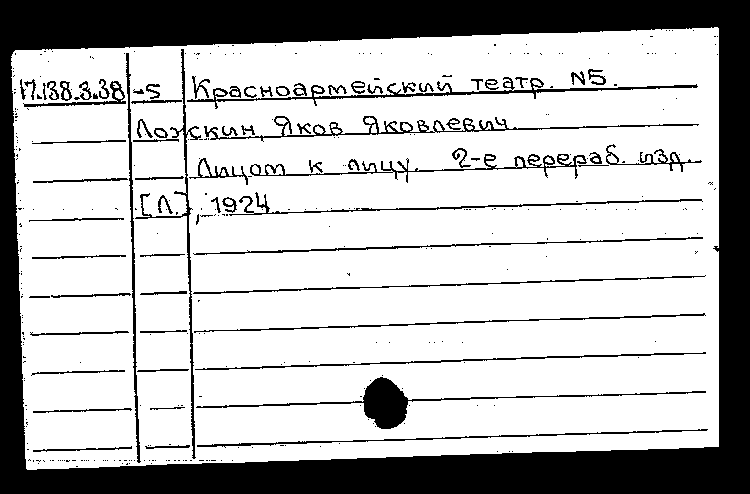 17.138.3.38 -5 Красноармейский театр. N5.
Ложкин, Яков Яковлевич.
Лицом к лицу. 2-е перераб. изд.
[Л.], 1924.